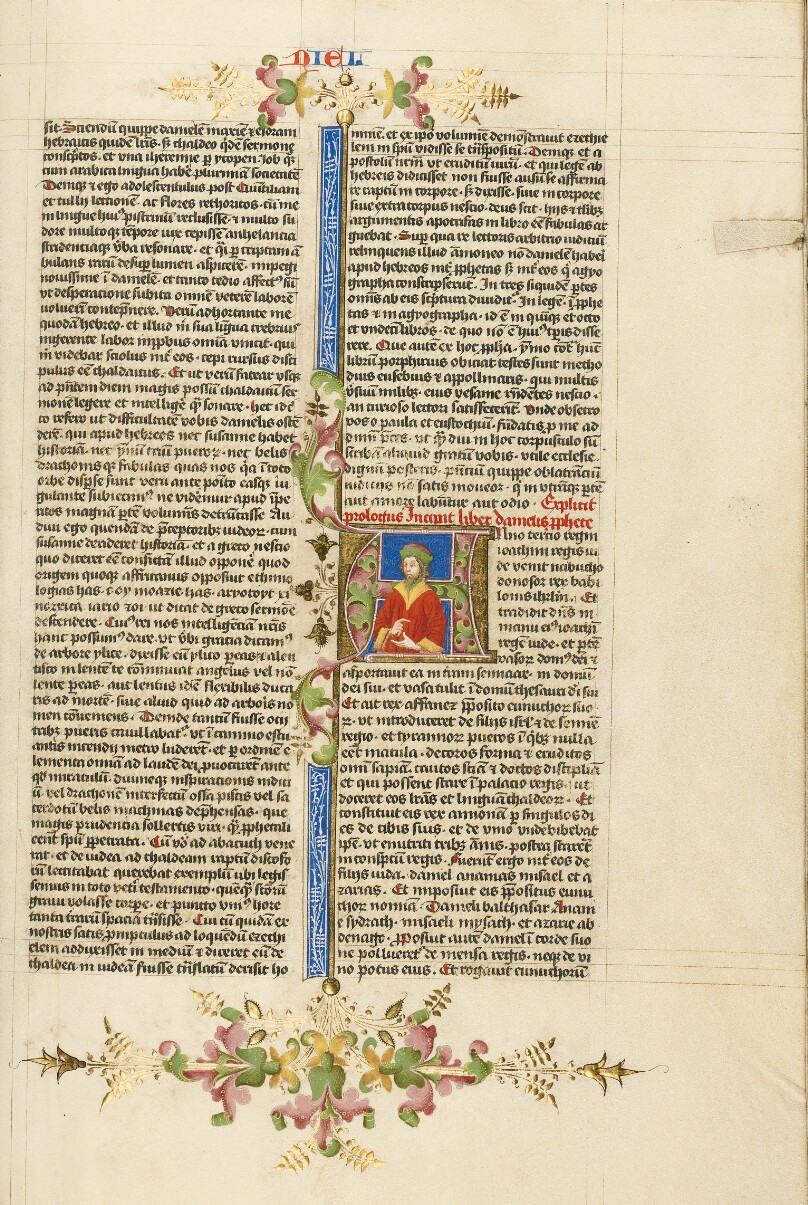 NIEL
sit. Sciendū quippe danielē maxīe ⁊ eʒram
hebraicis quidē lr̄is. sꝫ chaldeo q̄dē sermone
conscͥptos. et vnā iheremie ꝑ ycopen. Iob qꝫ
cum arabica lingua habē plurimā societatē
Deniqꝫ ⁊ ego adolescentulus post Quītiliani
et tulij lectionē. ac flores rethoricos. cū me
in lingue huiꝰ pistrinū reclusissē ⁊ multo su
dore multoqꝫ tēpore vix cepissē anhelancia
stridenciaqꝫ v̄ba resonare. et q̄i ꝑ criptam ā
bulans rarū desuꝑ lumen aspicerē. impegi
nouissime ī danielē. et tanto tedio affectꝰ sū
vt desperacione subita omnē veterē laborē
voluerī contēpnere. Verū adhortante me
quodā hebreo. et illud in sua līgua crebriꝰ
ingerente labor improbus omīa vincit. qui
in videbar sciolus int̄ eos. cepi rursus disci
pulus eē chaldaicus. Et ut verū fatear vsqꝫ
ad p̄ntem diem magis possū chaldaicū ser
monē legere et intellige q̄ꝫ sonare. hec idc̄
co refero ut difficultatē vobis danielis ostē
derē. qui apud hebreos nec susanne habet
historiā. nec ymnū triū pueroꝝ. nec belis
drachonisqꝫ fabulas quas nos q̄a ī toto
orbe disp̄se sunt veru ante posito easqꝫ iu
gulante subiecimꝰ ne videmur apud īpe
ritos magnā ꝑtē volumīs detrūcasse Au
diui ego quendā de p̄ceptoribꝫ iudeoꝝ. cum
susanne derideret historiā. et a greco nescio
quo diceret eē confictā illud opponē quod
origeni quoqꝫ affricanus opposuit ethimo
logias has.
de greco sermōe
descendere. Cuiꝰ rei nos intelligēciā nr̄is
hanc possumꝰ dare. vt v̄bi gracia dicamꝰ
de arbore ylice. dixisse eū ylico peas ⁊ a len
tisco in lentē te cōminuat angelus vel nō
lente peas. aut lentus id ē flexibilis duca
ris ad mortē. siue aliud quid ad arboris no
men cōueniens. Deinde tantū fuisse ocij
tribꝫ pueris cauillabatꝰ. vt ī camino estu
antis incendij metro luderēt. et ꝑ ordinē e
lementa omnia ad laudē dei ꝓuocarēt ante
qd miraculū. diuineqꝫ inspiracionis indici
ū. vel drachonē interfectū offa picis vel sa
cerdotū belis machinas dep̄hensas. que
magis prudencia sollertis viri. q̄ꝫ ꝓphetali
eent spū ꝑpetrata. Cū vo̊ ad abacuth veni
rat. et de iudea ad chaldeam raptū discofo
rū lectitabat querebat exemplū ubi legis
semus in toto veti testamento. quēqꝫ sc̄orū
graui volasse corpe. et puncto vniꝰ hore
tanta trarū spacia trāsisse. Cui cū quidā ex
nostris satis promptulus ad loquēdū eʒechi
elem adduxisset in mediū ⁊ diceret eū de
chaldea in iudeā fuisse trāslatū derisit ho
minē. et ex ipō volumīe demōstrauit eʒechie
lem in spū vidisse se trāspositū. Deniqꝫ et a
postolū nr̄m vt eruditū virū. et qui legē ab
hebreis didicisset non fuisse ausū se affirma
re raptū in corpore. sꝫ dixisse. siue in corpore
siue extra corpus nescio. deus scit. hijs ⁊ talibꝫ
argumentis apocrifas in libro eē fabulas ar
guebat. Suꝑ qua re lectoris arbitrio iudiciū
relinquens illud āmoneo nō danielē haberi
apud hebreos int̄ ꝓphetas sꝫ int̄ eos q̄ agyo
grapha conscripserūt. In tres siquidē ꝑtes
omīs ab eis sc̄ptura diuidit̄. In legē. ī ꝓphe
tas ⁊ in agyographa. id ē in q̄nqꝫ et octo
et vndecī libros. de quo nō ē huiꝰ tꝑis disse
rere. Que autē ex hoc ꝓpha. ymo cōt̄ hūc
librū porphirius obiciat testes sunt metho
dius eusebius ⁊ appollinaris. qui multis
v̄siuū milibꝫ. eius vesanie rn̄dētes nescio.
an curioso lectori satisfecerīt. Vnde obsecro
vos o paula et eustochiū. fūdatis ꝓ me ad
dnm̄ p̄ces. vt q̄ꝫdiu in hoc corpusculo sū
scribā aliquid gratū vobis. vtile ecclesie.
dignū posteris. p̄nciū quippe oblatrācū
iudicijs nō satis moueor. q̄ in vtrāqꝫ ꝑtē
aut amore labūtur aut odio. Explicit
prologus Incipit liber danielis ꝓphete
Anno tercio regni
ioachim regis iu
de venit nabucho
donosor rex babi
lonis ihrl̄m. Et
tradidit dn̄s in
manu eiꝰ ioachī
regē iude. et ꝑtē
vasoꝝ domꝰ dei ⁊
asportauit ea in terrā sennaar. in domū
dei sui. et vasa tulit ī domū thesauri d̄i sui
Et ait rex asfanez p̄posito eunuchoꝝ suo
ꝝ. vt introduceret de filijs isrl̄ ⁊ de semīe
regio. et tyrannoꝝ pueros ī q̄bꝫ nulla
eēt macula. decoros forma ⁊ eruditos
omī sapīa. cautos sciā ⁊ doctos disciplīa
et qui possent stare ī palacio regis. ut
doceret eos lr̄as et linguā chaldeoꝝ. Et
constituit eis rex annonā ꝑ singulos di
es de cibis suis. et de vino vnde bibebat
ipē. vt enutriti tribꝫ ānis. postea starēt
in conspcū regis. Fuerūt ergo int̄ eos de
filijs iuda. daniel ananias misael et a
zarias. Et imposuit eis p̄positus eunu
choꝝ nomīa. Danieli balthasar Anani
e sydrach. misaeli mysach. et azarie ab
denago. Proposuit autē daniel ī corde suo
ne pollueretꝰ de mensa regis. neqꝫ de vi
no potus eius. Et rogauit eunuchorū